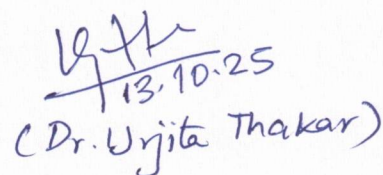 13.10.25
(Dr. Urjita Thakar)